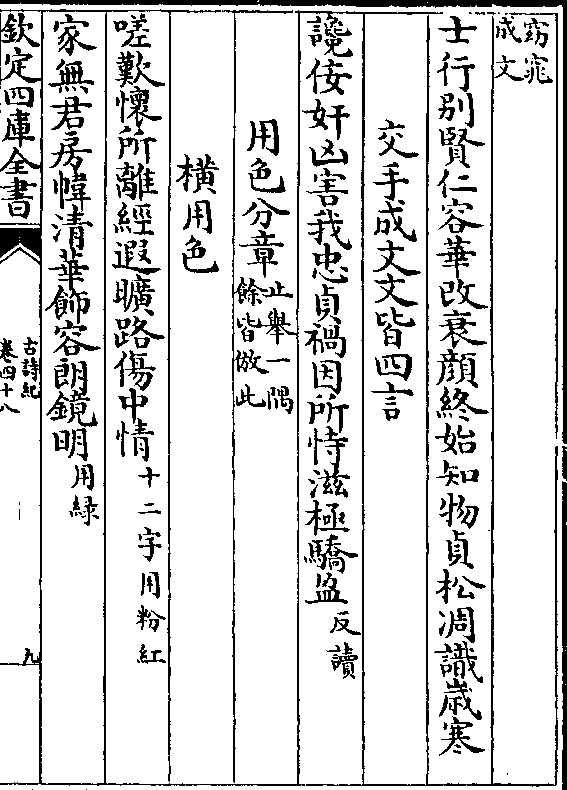 窈窕
成文
士行别賢仁容華改衰顔終始知物貞松凋識歲寒
交手成文文皆四言
讒佞奸凶害我忠貞禍因所恃滋極驕盈反讀
用色分章止舉一隅
餘皆倣此
横用色
嗟歎懷所離經遐曠路傷中情十二字用粉紅
家無君房幃清華飾容朗鏡明用緑
欽定四庫全書
古詩紀
卷四十八
九